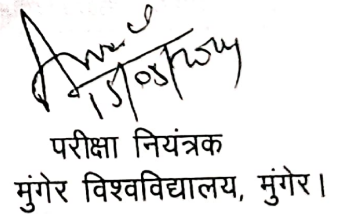 15/05/2024
परीक्षा नियंत्रक
मुंगेर विश्वविद्यालय, मुंगेर।